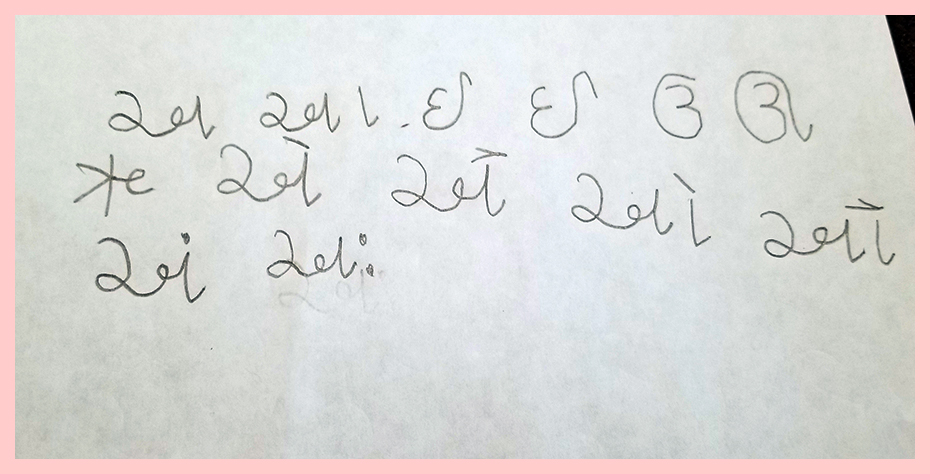 અ આ ઇ ઈ ઉ ઊ
ઋ એ ઐ ઓ ઔ
અં અઃ